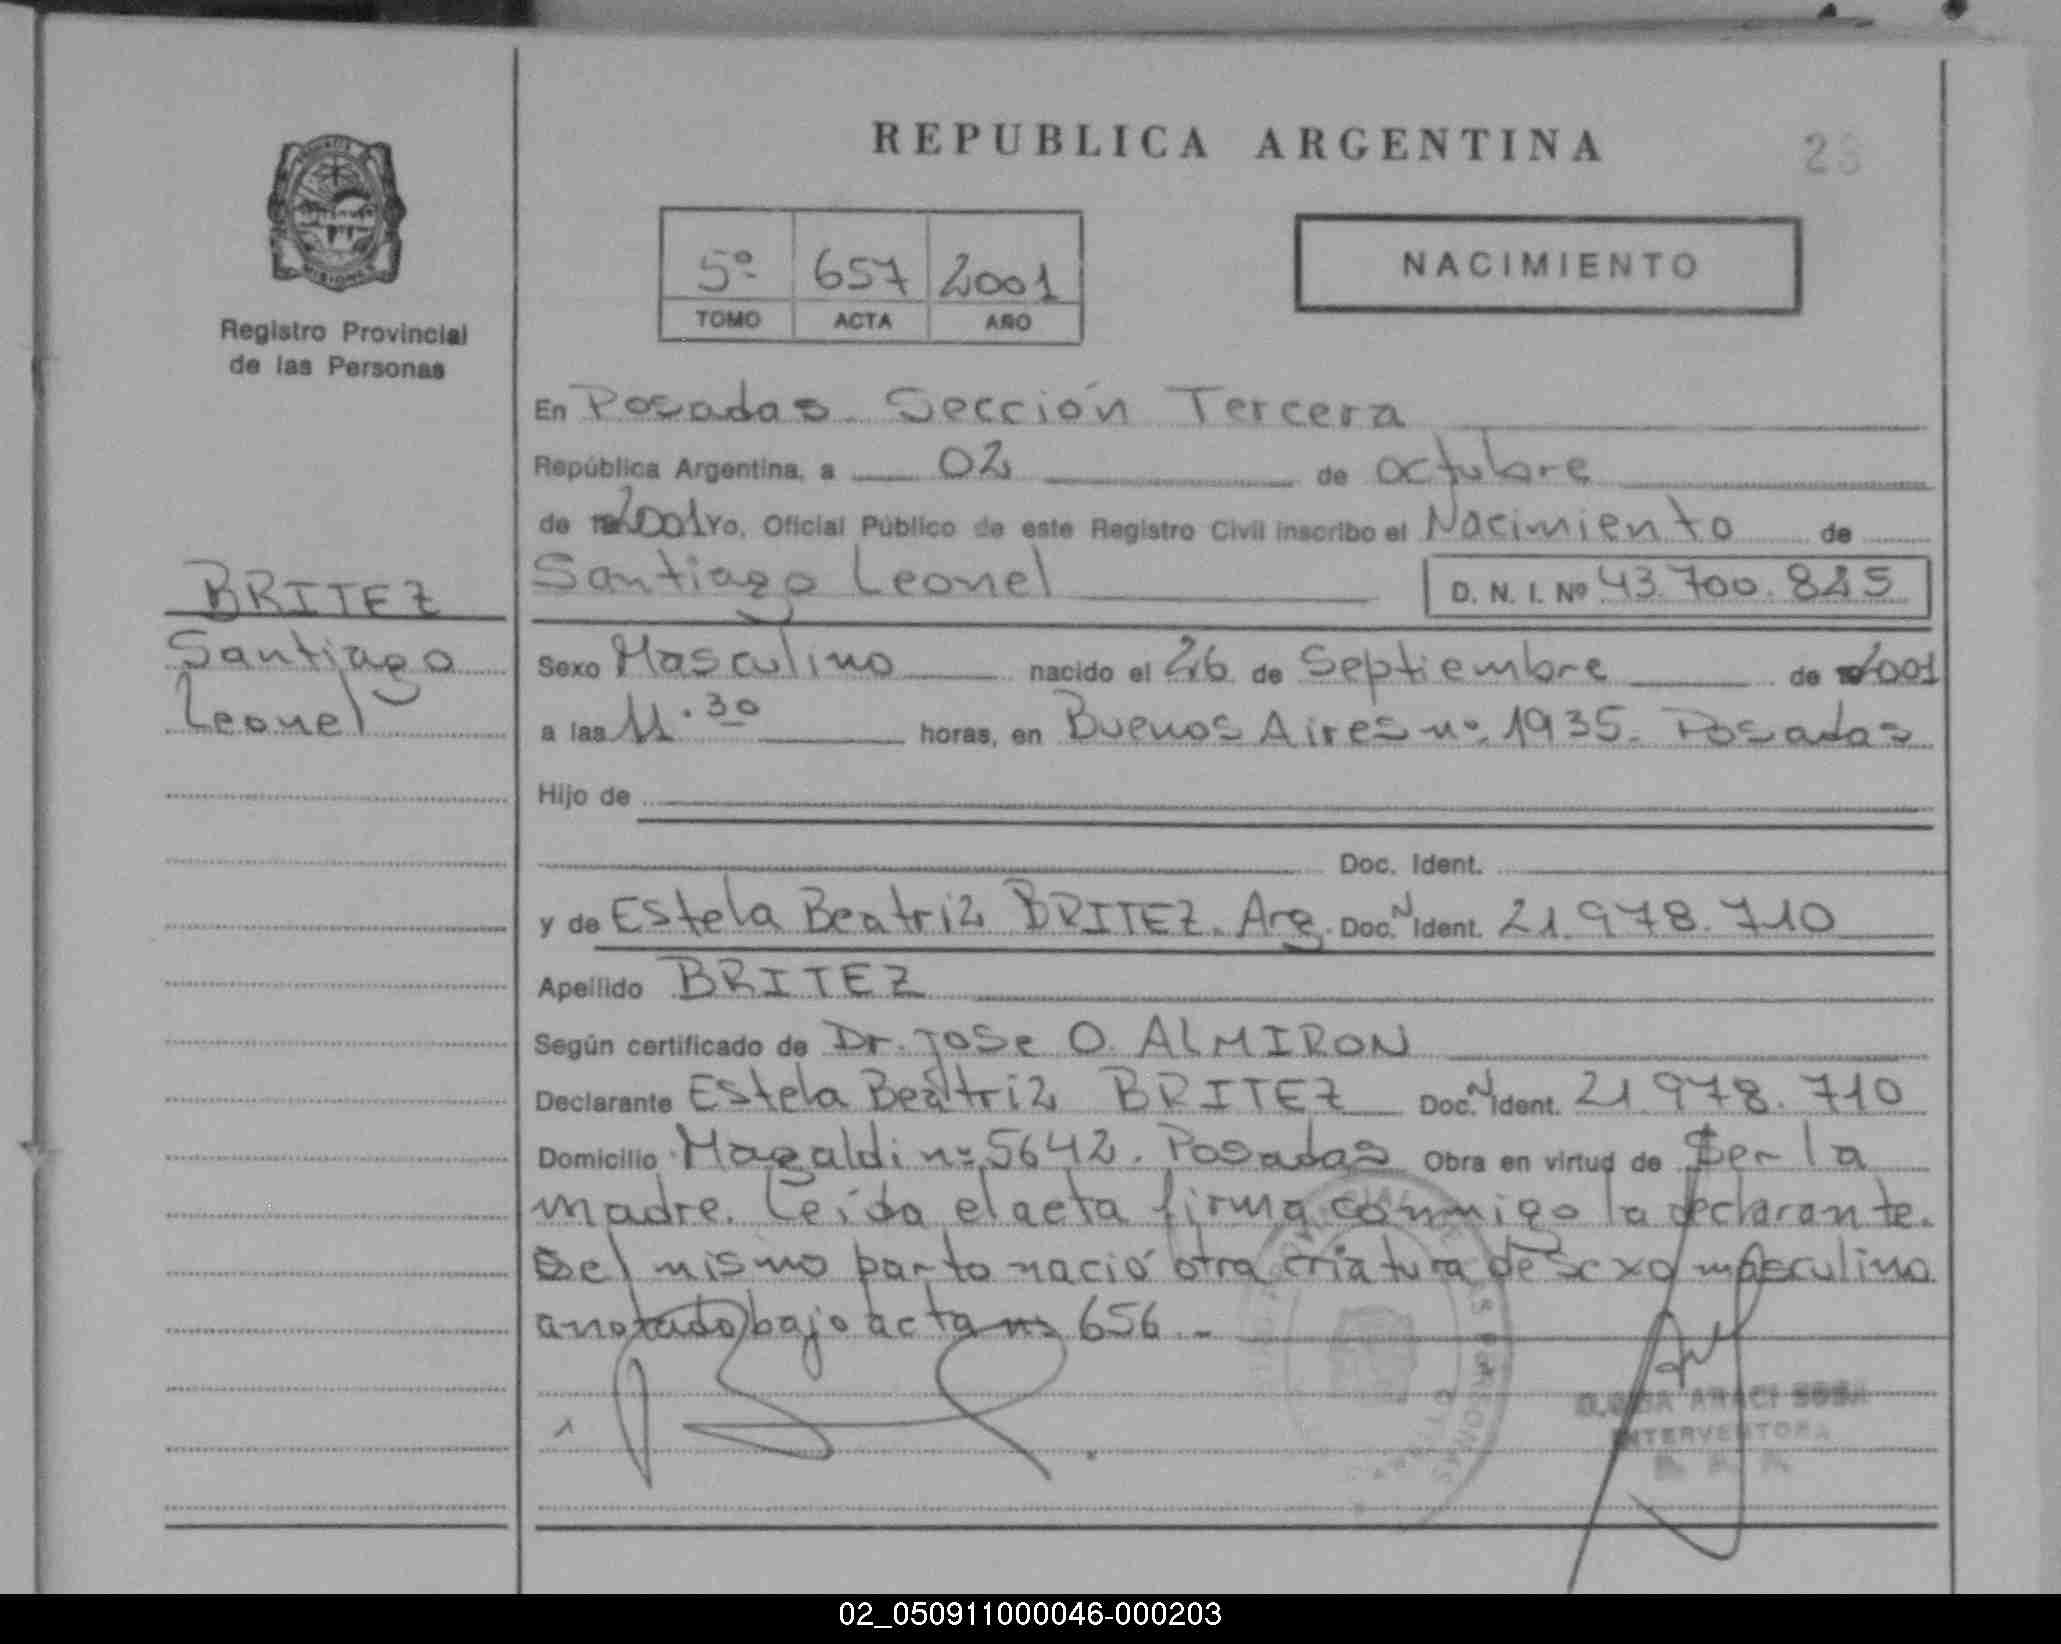 REPUBLICA ARGENTINA
5º 657 2001
TOMO ACTA AÑO
NACIMIENTO
MISIONES
Registro Provincial
de las Personas
En Posadas. Sección Tercera
República Argentina, a 02 de octubre
de 2001 Yo, Oficial Público de este Registro Civil inscribo el Nacimiento de
Santiago Leonel D. N. I. Nº 43.700.845
BRITEZ
Santiago
Leonel
Sexo Masculino nacido el 26 de Septiembre de 2001
a las 11.30 horas, en Buenos Aires nº 1935. Posadas
Hijo de
Doc. Ident.
y de Estela Beatriz BRITEZ. Arg. Doc. N Ident. 21.978.710
Apellido BRITEZ
Según certificado de Dr. Jose O. ALMIRON
Declarante Estela Beatriz BRITEZ Doc. N Ident. 21.978.710
Domicilio Magaldi nº 5642. Posadas Obra en virtud de Ser la
madre. Leída el acta firma conmigo la declarante.
Del mismo parto nació otra criatura de sexo masculino
anotado bajo acta nº 656.-
ARACI SOSA
INTERVENTORA
02_050911000046-000203